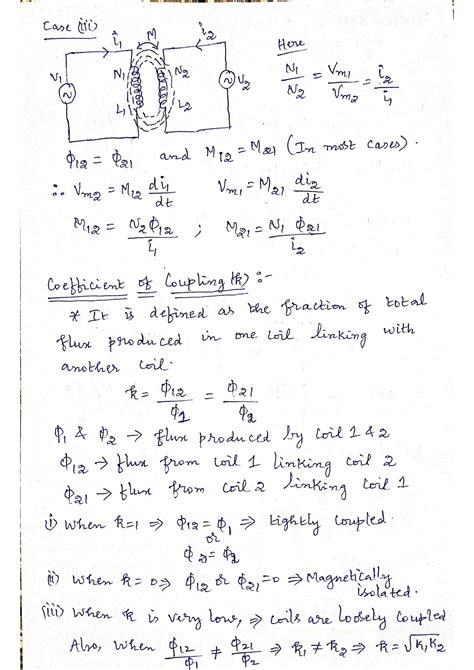 Case (iii)
i₁ M i₂
V₁ N₁ N₂ V₂
L₁ L₂
Here
N₁/N₂ = Vm₁/Vm₂ = i₂/i₁
Φ12 = Φ21 and M12 = M21 (In most cases).
∴ Vm2 = M12 di₁/dt Vm₁ = M21 di2/dt
M12 = N2Φ12/i₁ ; M21 = N₁ Φ21/i2
Coefficient of Coupling (k) :-
* It is defined as the fraction of total
flux produced in one coil linking with
another coil.
k = Φ12/Φ1 = Φ21/Φ2
Φ₁ & Φ2 → flux produced by coil 1 & 2
Φ12 → flux from coil 1 linking coil 2
Φ21 → flux from coil 2 linking coil 1
i) When k=1 ⇒ Φ12 = Φ₁ ⇒ tightly coupled.
or
Φ2 = Φ2
(ii) When k = 0 ⇒ Φ12 or Φ21 = 0 ⇒ Magnetically
isolated.
(iii) When k is very low, ⇒ coils are loosely coupled
Also, when Φ12/Φ1 ≠ Φ21/Φ2 ⇒ k₁ ≠ k2 ⇒ k = √K₁K2